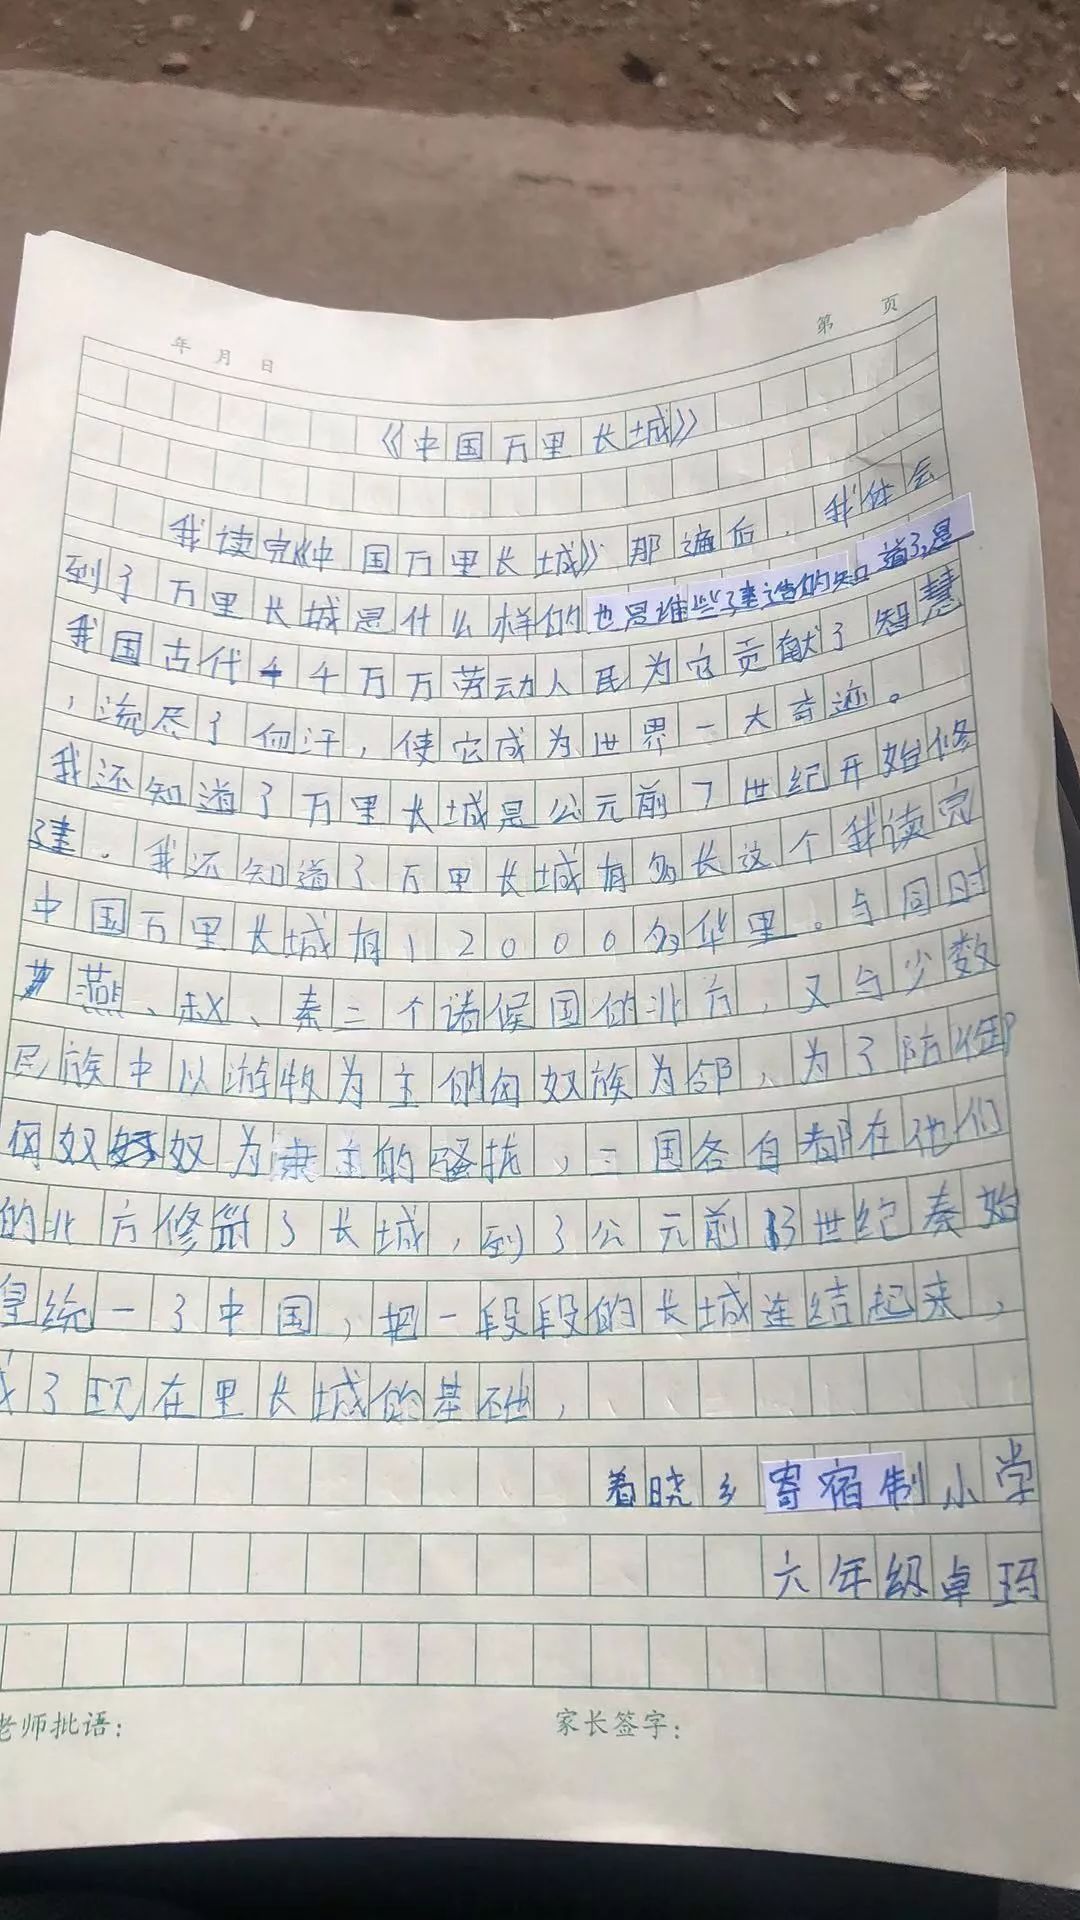 年 月 日
第 页
《中国万里长城》
我读完《中国万里长城》那遍后，我体会
到了万里长城是什么样的也是谁些建造的知道了,是
我国古代千千万万劳动人民为它贡献了智慧
，流尽了血汗，使它成为世界一大奇迹。
我还知道了万里长城是公元前7世纪开始修
建．我还知道了万里长城有多长这个我读完
中国万里长城有12000多华里。与同时
燕、赵、秦三个诸候国的北方，又与少数
民族中以游牧为主的匈奴族为邻，为了防御
匈奴奴为主的骚扰，三国各自都在他们
的北方修筑了长城，到了公元前3世纪秦始
皇统一了中国，把一段段的长城连结起来，
成了现在里长城的基础，
着晓乡寄宿制小学
六年级卓玛
老师批语：
家长签字：